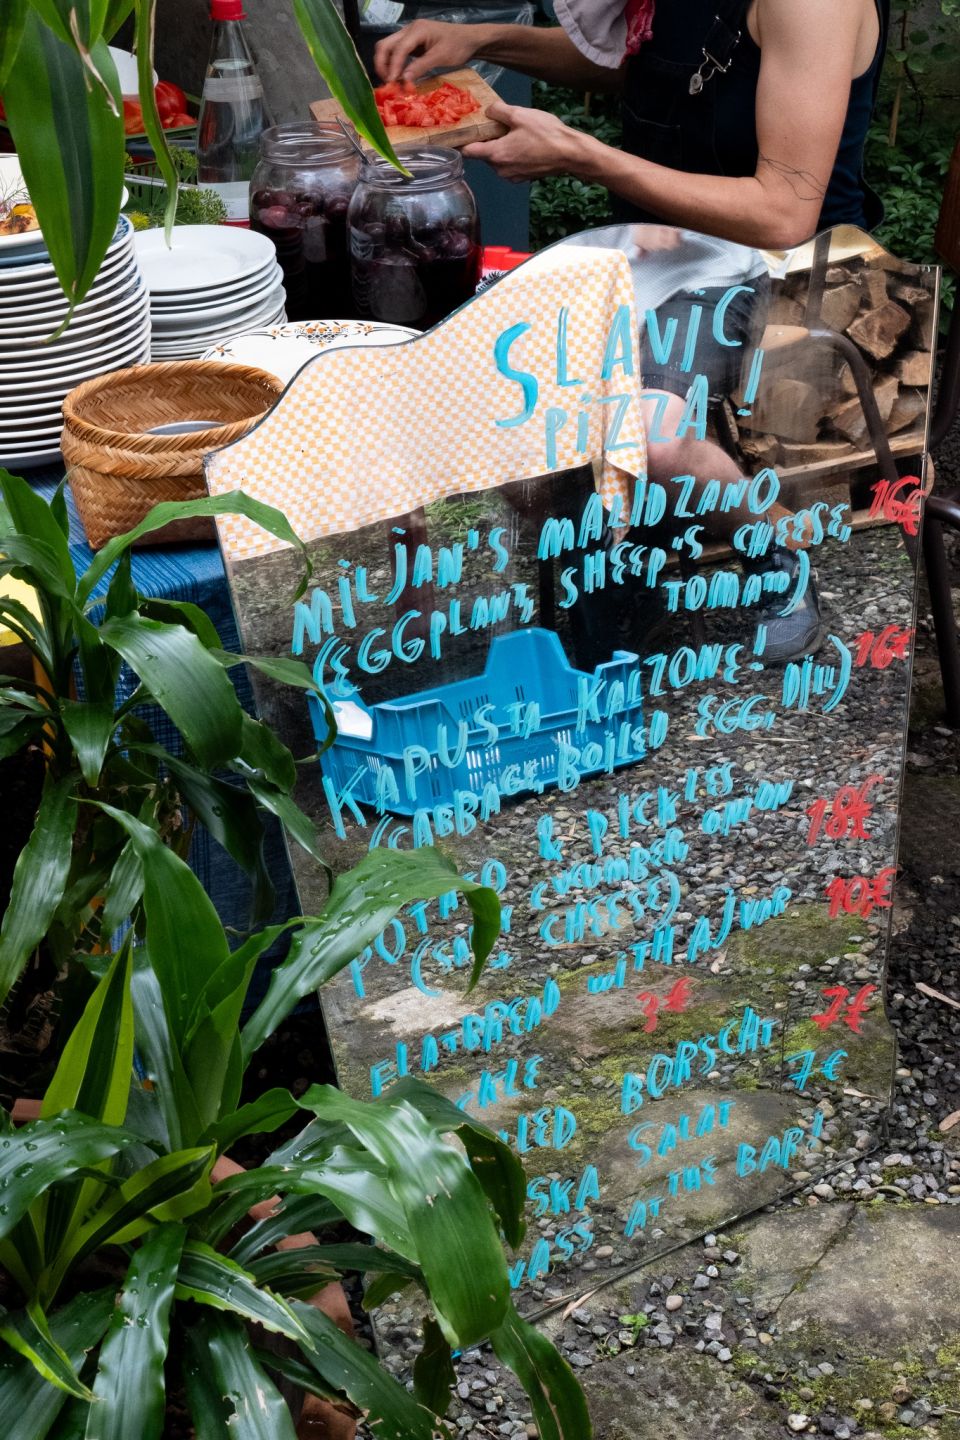 SLAViC
PiZZA!
MiLJAN'S MALIDZANO 16€
(EGGPLANT, SHEEP'S CHEESE,
TOMATO)
KAPUSTA KALZONE! 16€
(CABBAGE, BOILED EGG, DiLL)
POTATO & PICKLES 18€
CUCUMBER, ONiON
CHEESE)
FLATBREAD WiTH AJVAR 10,€
3€
BORSCHT 7€
SALAT 7€
AT THE BAR!